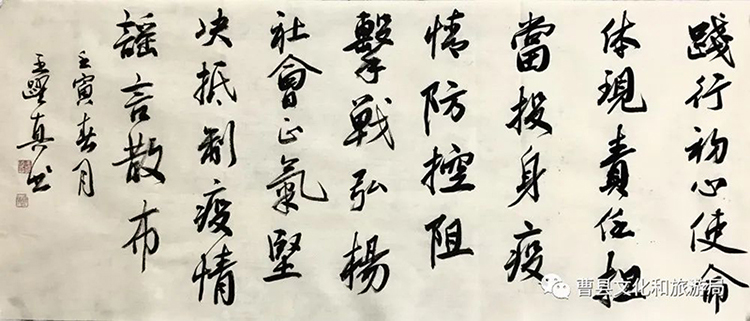 踐行初心使命
体現責任担
當投身疫
情防控阻
擊戰弘楊
社會正氣堅
决抵制疫情
謠言散布
壬寅春月
王躍真书
曹县文化和旅游局